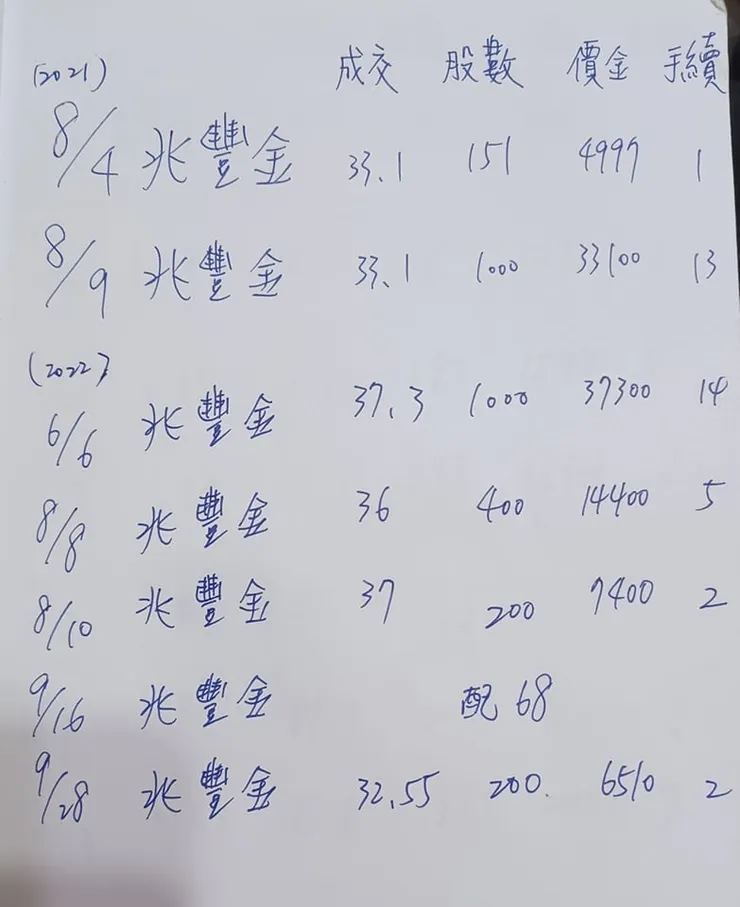 (2021) 成交 股數 價金 手續
8/4 兆豐金 33.1 151 4997 1
8/9 兆豐金 33.1 1000 33100 13
(2022)
6/6 兆豐金 37.3 1000 37300 14
8/8 兆豐金 36 400 14400 5
8/10 兆豐金 37 200 7400 2
9/16 兆豐金 配 68
9/28 兆豐金 32.55 200. 6510 2